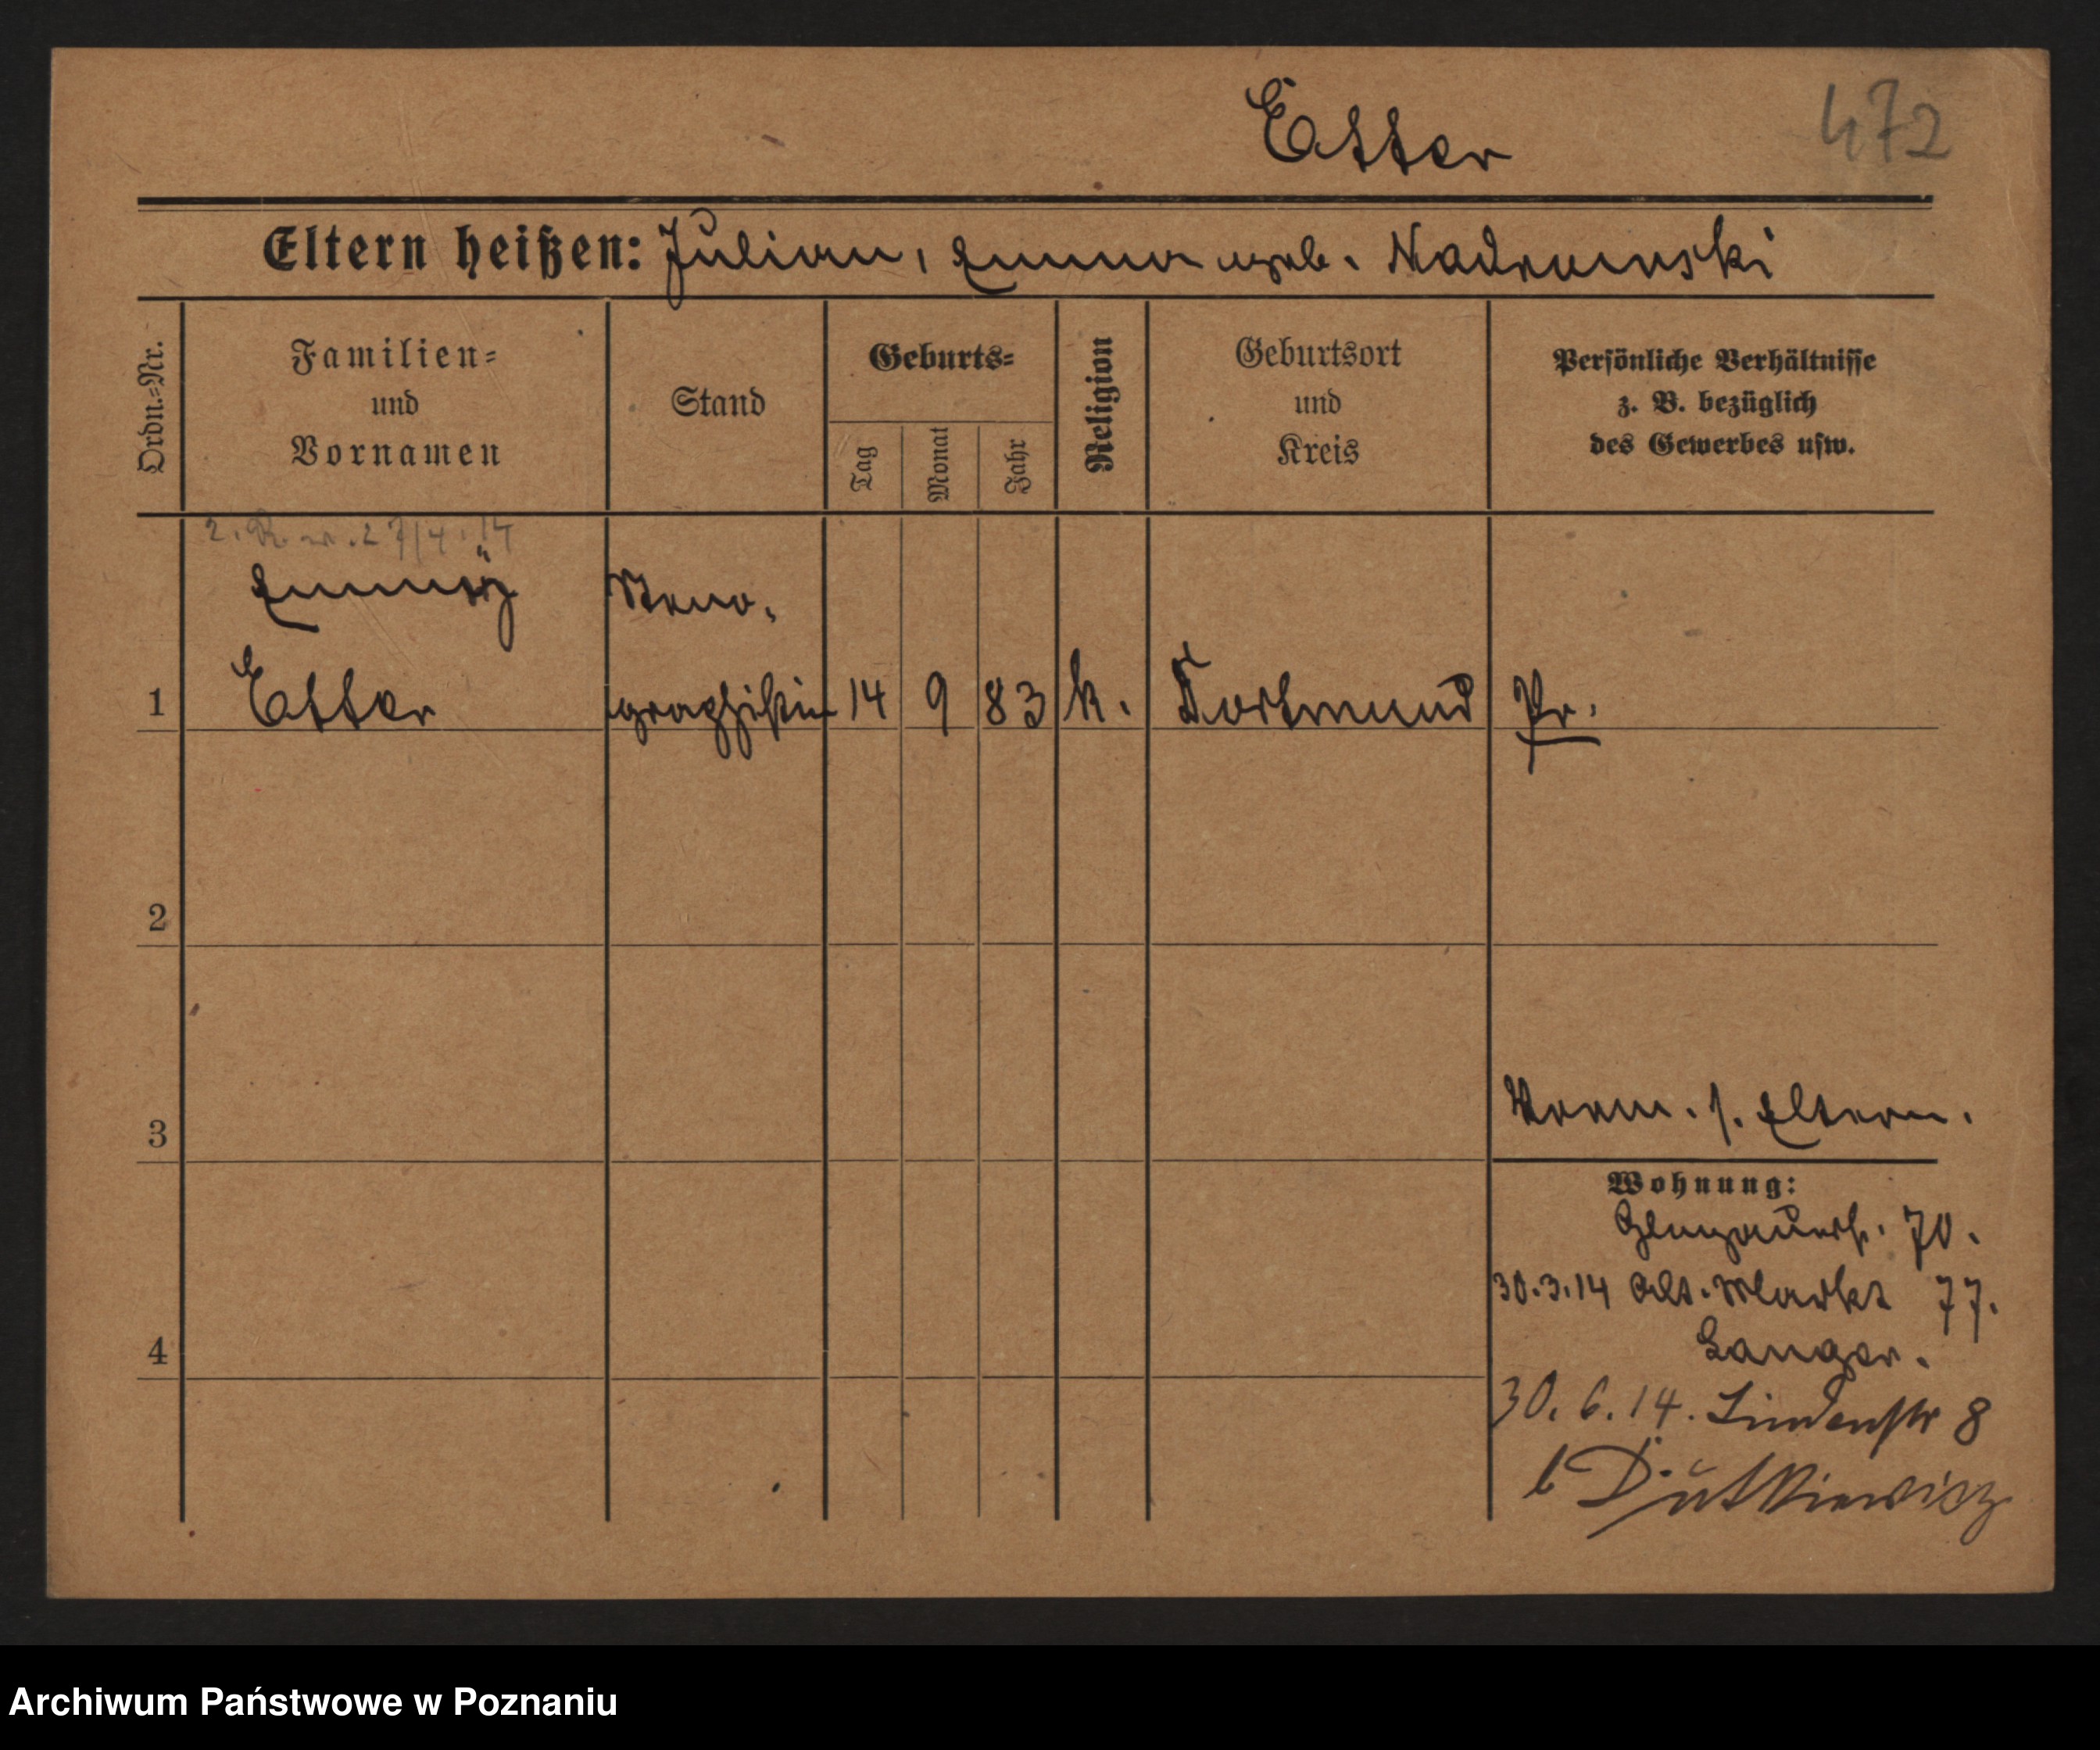 Etter
472
Eltern heißen: Julian, Emma geb. Nadrowski
Ordn.=Nr.
Familien=
und
Vornamen
Stand
Geburts=
Tag
Monat
Jahr
Religion
Geburtsort
und
Kreis
Persönliche Verhältnisse
z. B. bezüglich
des Gewerbes usw.
27/4.14
Emmy Steno-
1 Etter graphistin 14 9 83 k. Dortmund Pr.
2
3
Vorm. s. Eltern.
Wohnung:
Glogauerstr. 70.
30.3.14 Alt. Markt 77.
Langer.
4
30.6.14. Lindenstr 8
b Dutkiewicz
Archiwum Państwowe w Poznaniu